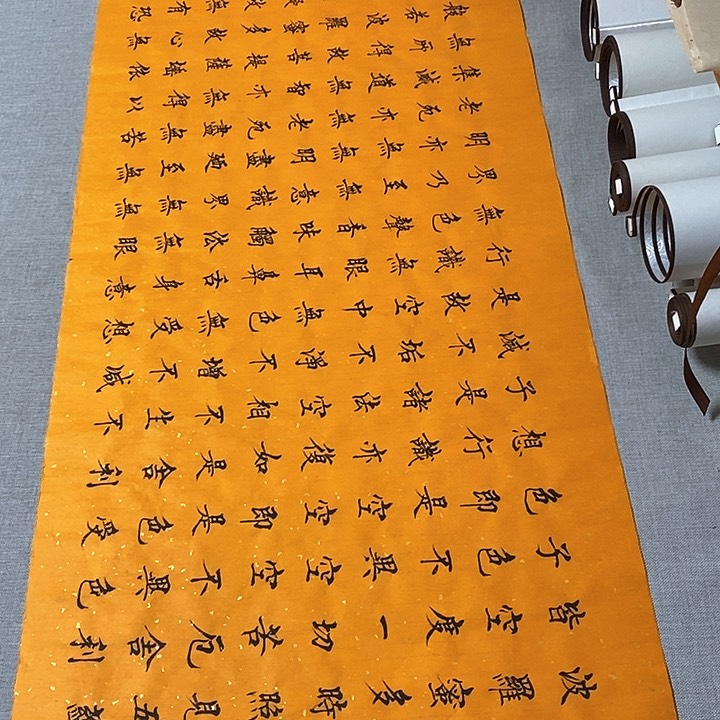 有恐
般若波羅蜜多故心無
無所得故菩提薩埵依
集滅道無智亦無得以
老死亦無老死盡無苦
明亦無無明盡至無
界乃至無意識界無無
無色聲香味觸法無眼
行識無眼耳鼻舌身意
是故空中無色無受想
滅不垢不淨不增不減
子是諸法空相不生不
想行識亦復如是舍利
色即是空空即是色受
子色不異空空不異色
皆空度一切苦厄舍利
波羅蜜多時照見五蘊